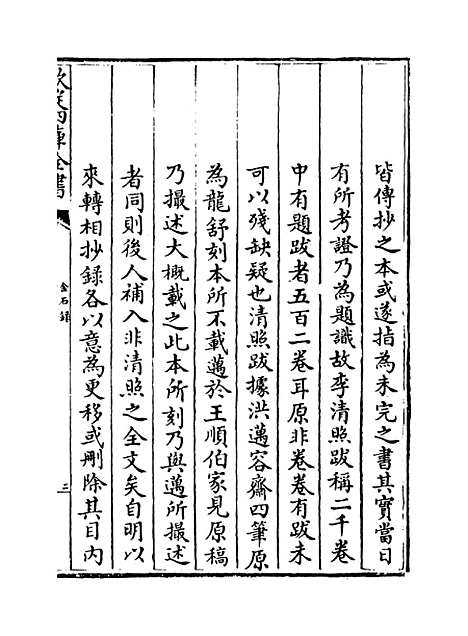 皆傳抄之本或遂指為未完之書其實當日
有所考證乃為題識故李清照跋稱二千卷
中有題跋者五百二卷耳原非卷卷有跋未
可以殘缺疑也清照跋據洪邁容齋四筆原
為龍舒刻本所不載邁於王順伯家見原稿
乃撮述大概載之此本所刻乃與邁所撮述
者同則後人補入非清照之全文矣自明以
來轉相抄錄各以意為更移或刪除其目內
欽定四庫全書
金石錄
三